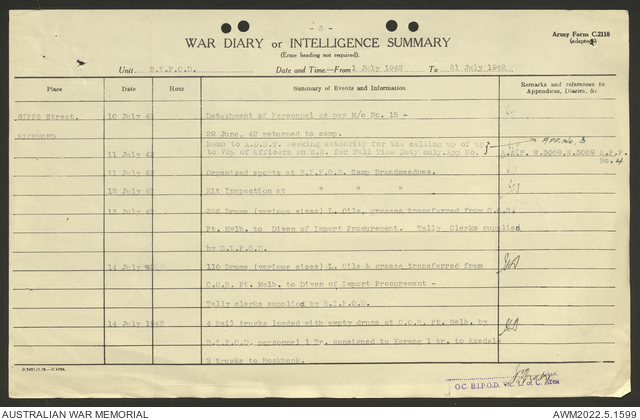 - 3 -
Army Form C.2118
(adapted)
WAR DIARY or INTELLIGENCE SUMMARY
(Erase heading not required).
Unit B.I.P.O.D. Date and Time.—From 1 July 1942 To 31 July 1942
Place Date Hour Summary of Events and Information Remarks and references to Appendices, Diaries, &c.
GIPPS Street, 10 July 42 Detachment of Personnel as per M/O No. 15 -
RICHMOND 29 June, 42 returned to camp.
Memo to A.D.S.T. seeking authority for the calling up of up APP. No. 3
11 July 42 to 75% of Officers on W.E. for Full Time Duty only. App No. A.A.F. W.3008, W.3009 A.P.P. No. 4
11 July 42 Organised sports at B.I.P.O.D. Camp Broadmeadows.
12 July 42 Kit Inspection at " " "
13 July 42 396 Drums (various sizes) L. Oils, greases transferred from C.O.R.
Pt. Melb. to Divsn of Import Procurement. Tally Clerks supplied
by B.I.P.O.D.
14 July 42 110 Drums (various sizes) L. Oils & grease transferred from
C.O.R. Pt. Melb. to Divsn of Import Procurement -
Tally clerks supplied by B.I.P.O.D.
14 July 1942 4 Rail trucks loaded with empty drums at C.O.R. Pt. Melb. by
B.I.P.O.D. personnel 1 Tr. consigned to Kerang 1 tr. to Axedale
2 trucks to Rockbank.
O.C. B.I.P.O.D. Vic. L of C. Area
AUSTRALIAN WAR MEMORIAL AWM2022.5.1599